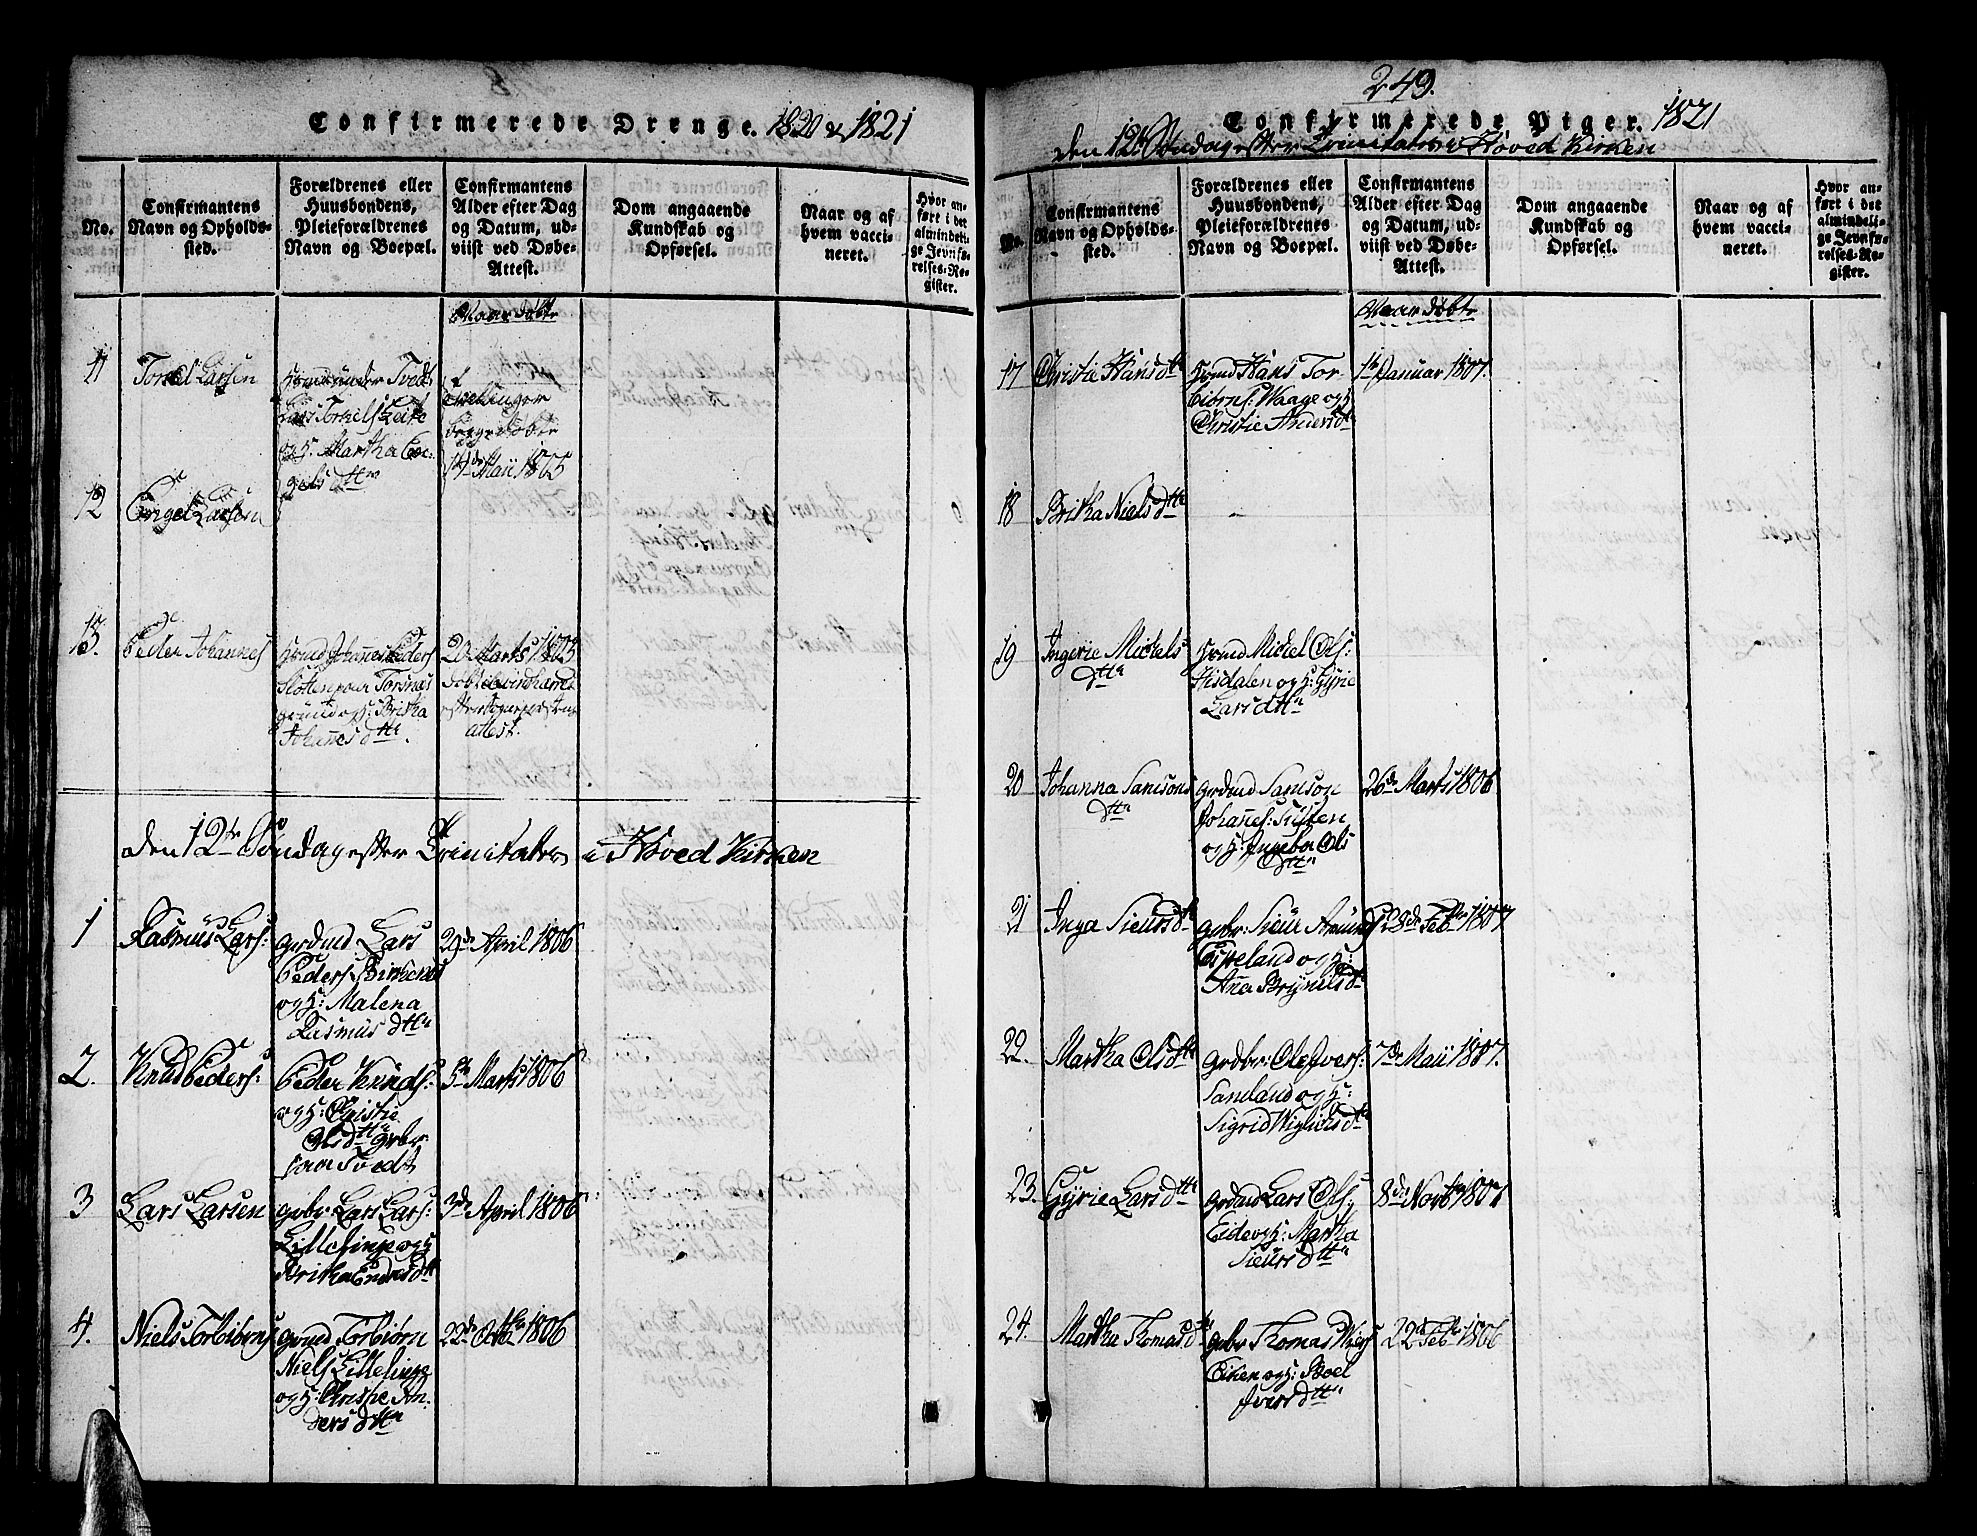 Confirmerede Drenge. 1820 & 1821
No.
Confirmantens
Navn og Opholds-
sted.
Forældrenes eller
Huusbondens,
Pleieforældrenes
Navn og Boepæl.
Confirmantens
Alder efter Dag
og Datum, ud-
viist ved Døbe-
Attest.
Dom angaaende
Kundskab og
Opførsel.
Naar og af
hvem vacci-
neret.
Hvor an-
ført i det
almindeli-
ge Jevnfø-
relses-Re-
gister.
Naar døbte
11
Torkel Larsen
Lars Torkels
og H: Martha En-
gels dttr
Tvillinger
begge døbte
14de Maii 1805
12
Engel Larsen
13.
Peder Johannes
Johannes Peders
og H: Britha
Johannes dttr.
20 Marts 1805
attest.
den 12te Søndag efter Trinitatis i Hoved Kirken
1
Rasmus Lars:
grdmd Lars
Peders: Birkenes
og H: Malena
Rasmus dttr
29de April 1806
2.
Knud Peders:
Peder Knuds:
og H: Christie
Ols dttr grbr
paa Tvedt
5te Marts 1806
3
Lars Larsen
grbr Lars Lars:
Lillelinge og H
Britha Endres dtt
3de April 1806
4.
Niels Torbiørns
grdmd Torbiørn
Niels Lillelinge
og H: Christie An-
ders dttr
22de Octbr 1806
249.
Confirmerede Piger. 1821
den 12te Søndag efter Trinitatis i Hoved Kirken
No.
Confirmantens
Navn og Opholds-
sted.
Forældrenes eller
Huusbondens,
Pleieforældrenes
Navn og Boepæl.
Confirmantens
Alder efter Dag
og Datum, ud-
viist ved Døbe-
Attest.
Dom angaaende
Kundskab og
Opførsel.
Naar og af
hvem vacci-
neret.
Hvor an-
ført i det
almindeli-
ge Jevnfø-
relses-Re-
gister.
Naar døbte
17
Christie Hans dtt
Hans Tor-
biørns: Waage og H
Christie Anders dtt
1te Januar 1807.
18
Britha Niels dttr
19
Ingerie Mickels
dttr
Mickel Ols:
Hisdalen og H: Gyrie
Lars dttr
20
Johanna Samsons
dttr
grdmd Samson
Johannes:
og H: Ingebor Ols
dttr
26de Marts 1806
21
Inga Sieurs dtt
grbr: Sieur Amunds
Espeland og H:
Anna Brynels dtt
28de Febr 1807
22.
Martha Ols dtt
grdbr: Ole Ivers:
Samland og H:
Sigrid dtt
7de Maii 1807.
23.
Gyrie Lars dttr
grdmd Lars Ols:
Eide og H: Martha
Sieurs dttr
8de Novbr 1807
24.
Martha Thomas dtr
grbr Thomas
Eiken og H: Boel
Ivers dttr
22de Febr 1806